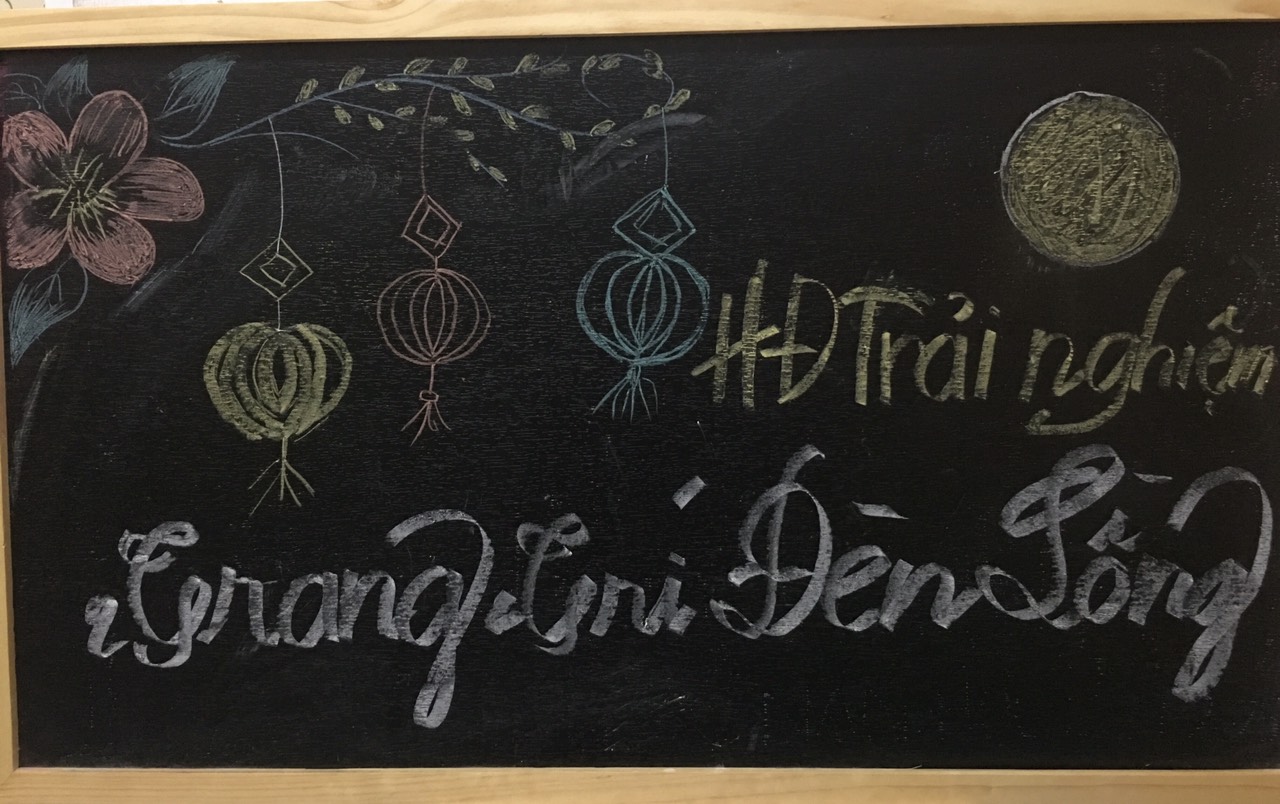 HĐ Trải nghiệm
Trang Trí Đèn Lồng